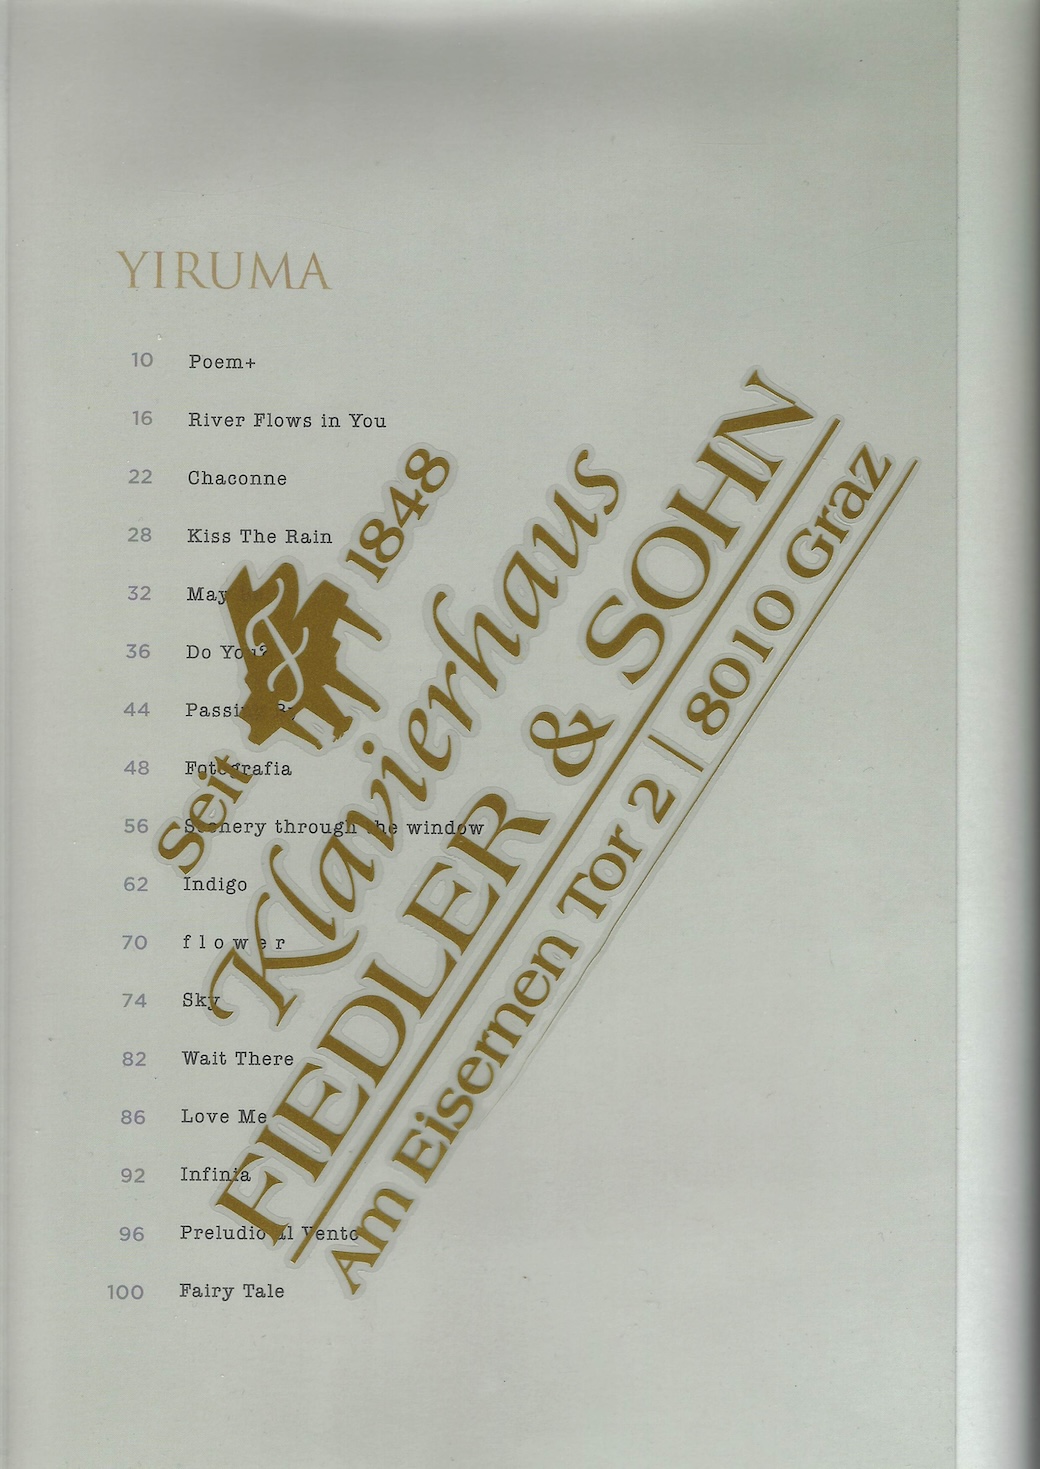 YIRUMA
10 Poem+
16 River Flows in You
22 Chaconne
28 Kiss The Rain
32 May
36 Do You?
44 Passing By
48 Fotografia
56 Scenery through the window
62 Indigo
70 f l o w e r
74 Sky
82 Wait There
86 Love Me
92 Infinia
96 Preludio al Vento
100 Fairy Tale
Seit 1848
Klavierhaus
FIEDLER & SOHN
Am Eisernen Tor 2 | 8010 Graz